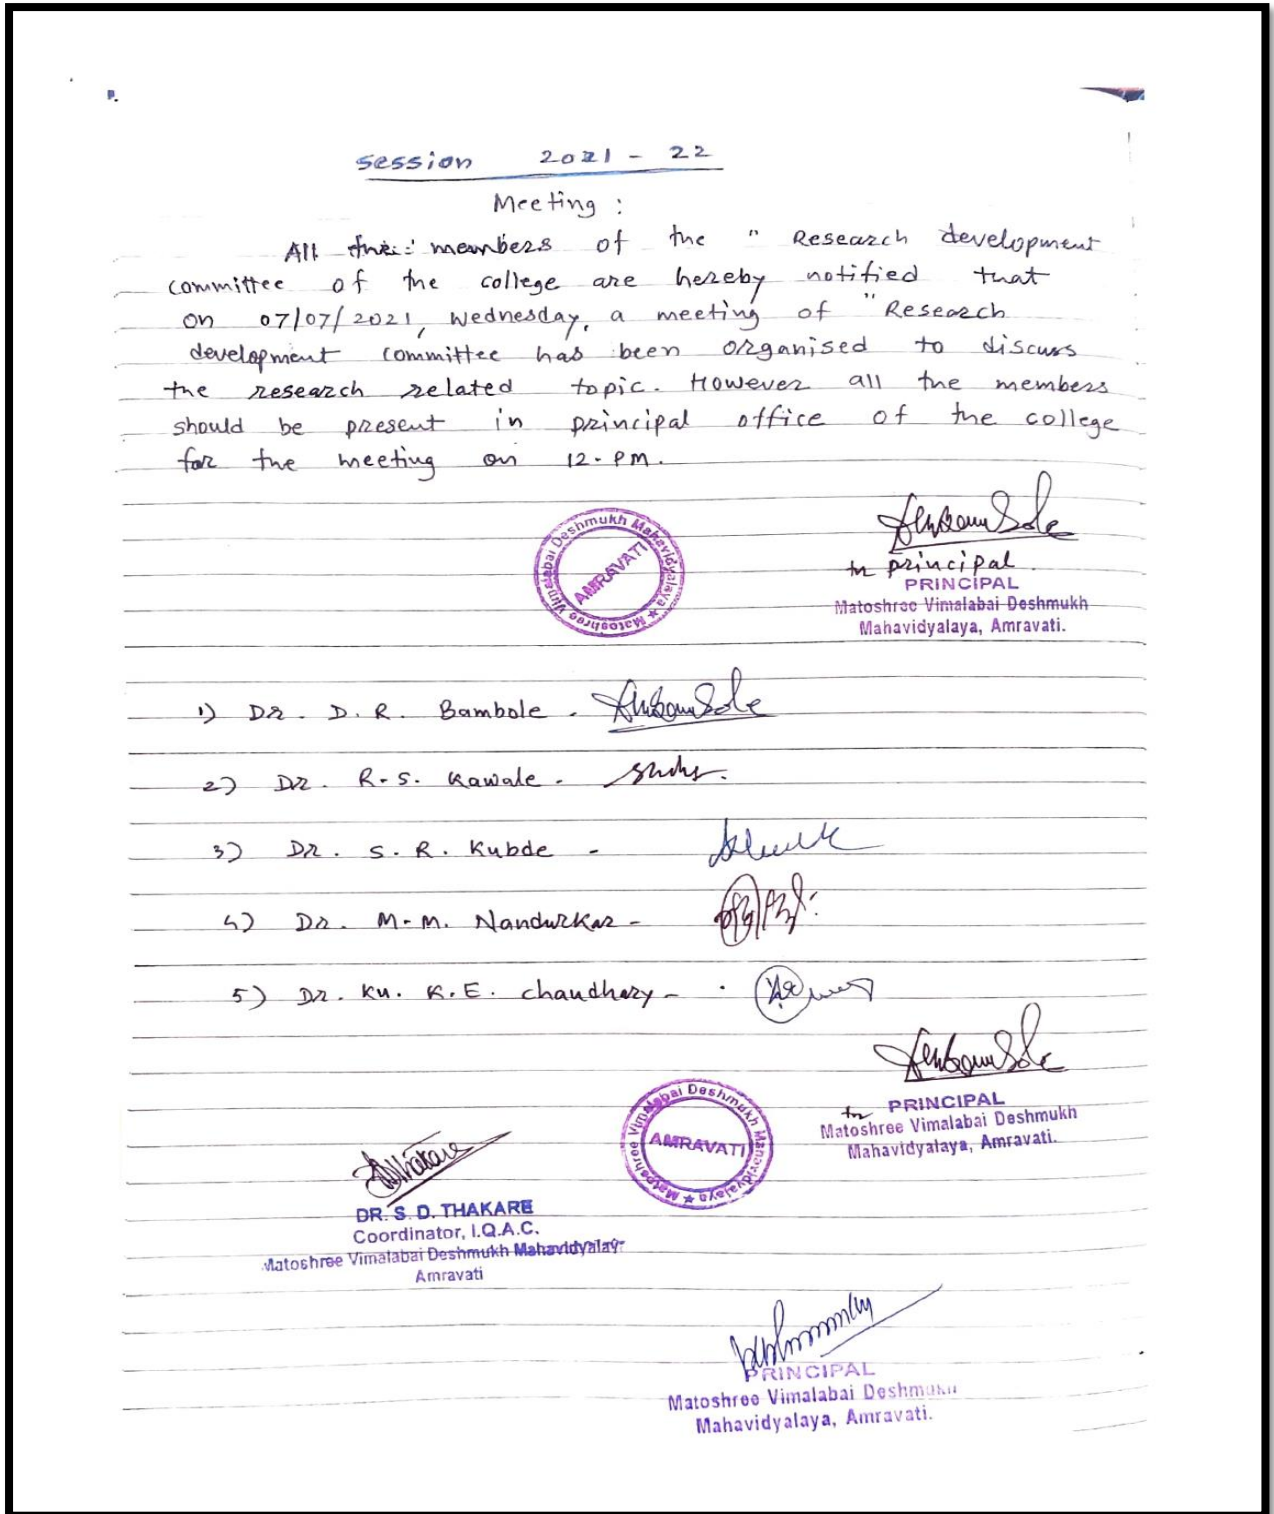 session 2021 - 22
Meeting :
All the members of the " Research development
committee of the college are hereby notified that
on 07/07/2021, Wednesday, a meeting of "Research
development committee has been organised to discuss
the research related topic. However all the members
should be present in principal office of the college
for the meeting on 12-PM.
Matoshree Vimalabai Deshmukh Mahavidyalaya ★
AMRAVATI
principal
PRINCIPAL
Matoshree Vimalabai Deshmukh
Mahavidyalaya, Amravati.
1) DR. D.R. Bambole -
2) DR. R.S. Kawale -
3) DR. S.R. Kubde -
4) DR. M.M. Nandurkar -
5) DR. Ku. K.E. chaudhary -
PRINCIPAL
Matoshree Vimalabai Deshmukh
Mahavidyalaya, Amravati.
Matoshree Vimalabai Deshmukh Mahavidyalaya ★
AMRAVATI
DR. S. D. THAKARE
Coordinator, I.Q.A.C.
Matoshree Vimalabai Deshmukh Mahavidyalay
Amravati
PRINCIPAL
Matoshree Vimalabai Deshmukh
Mahavidyalaya, Amravati.